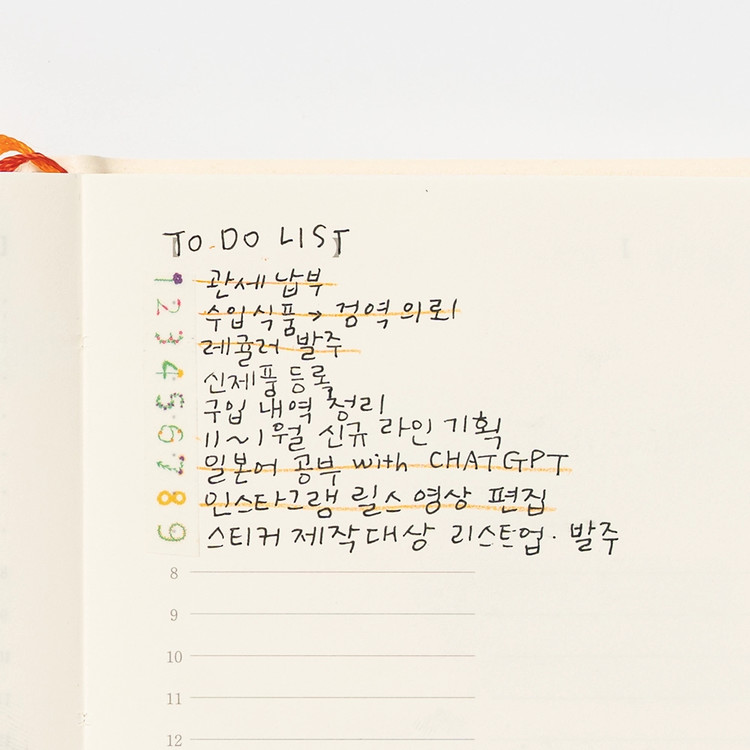 TO DO LIST
1 관세 납부
2 수입식품 → 검역 의뢰
3 레귤러 발주
4 신제품 등록
5 구입 내역 정리
6 11~1월 신규 라인 기획
7 일본어 공부 with CHATGPT
8 인스타그램 릴스 영상 편집
9 스티커 제작대상 리스트업·발주
8
9
10
11
12